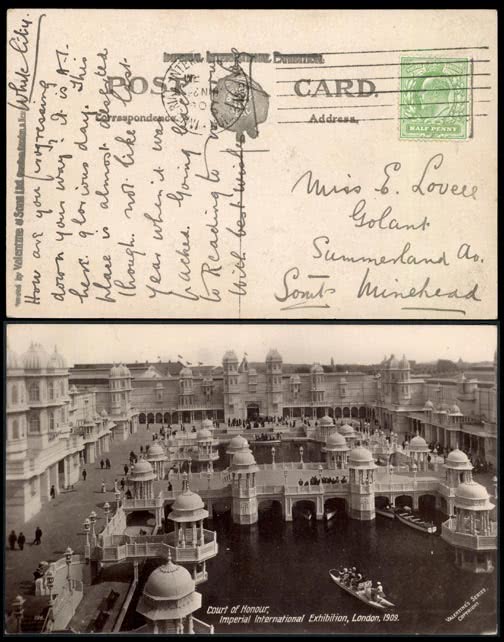 White City.
IMPERIAL INTERNATIONAL EXHIBITION.
POST CARD.
Correspondence.
Address.
HALF PENNY
How are you progressing
down your way? It is A.1.
here glorious day. This
place is almost deserted
though. not like last
year when it was
packed. Going back
to Reading to
With best wishes
Miss E. Lovell
Golant
Summerland Av.
Soms Minehead
Valentine & Sons Ltd.
Court of Honour,
Imperial International Exhibition, London, 1909.
VALENTINE'S SERIES
COPYRIGHT